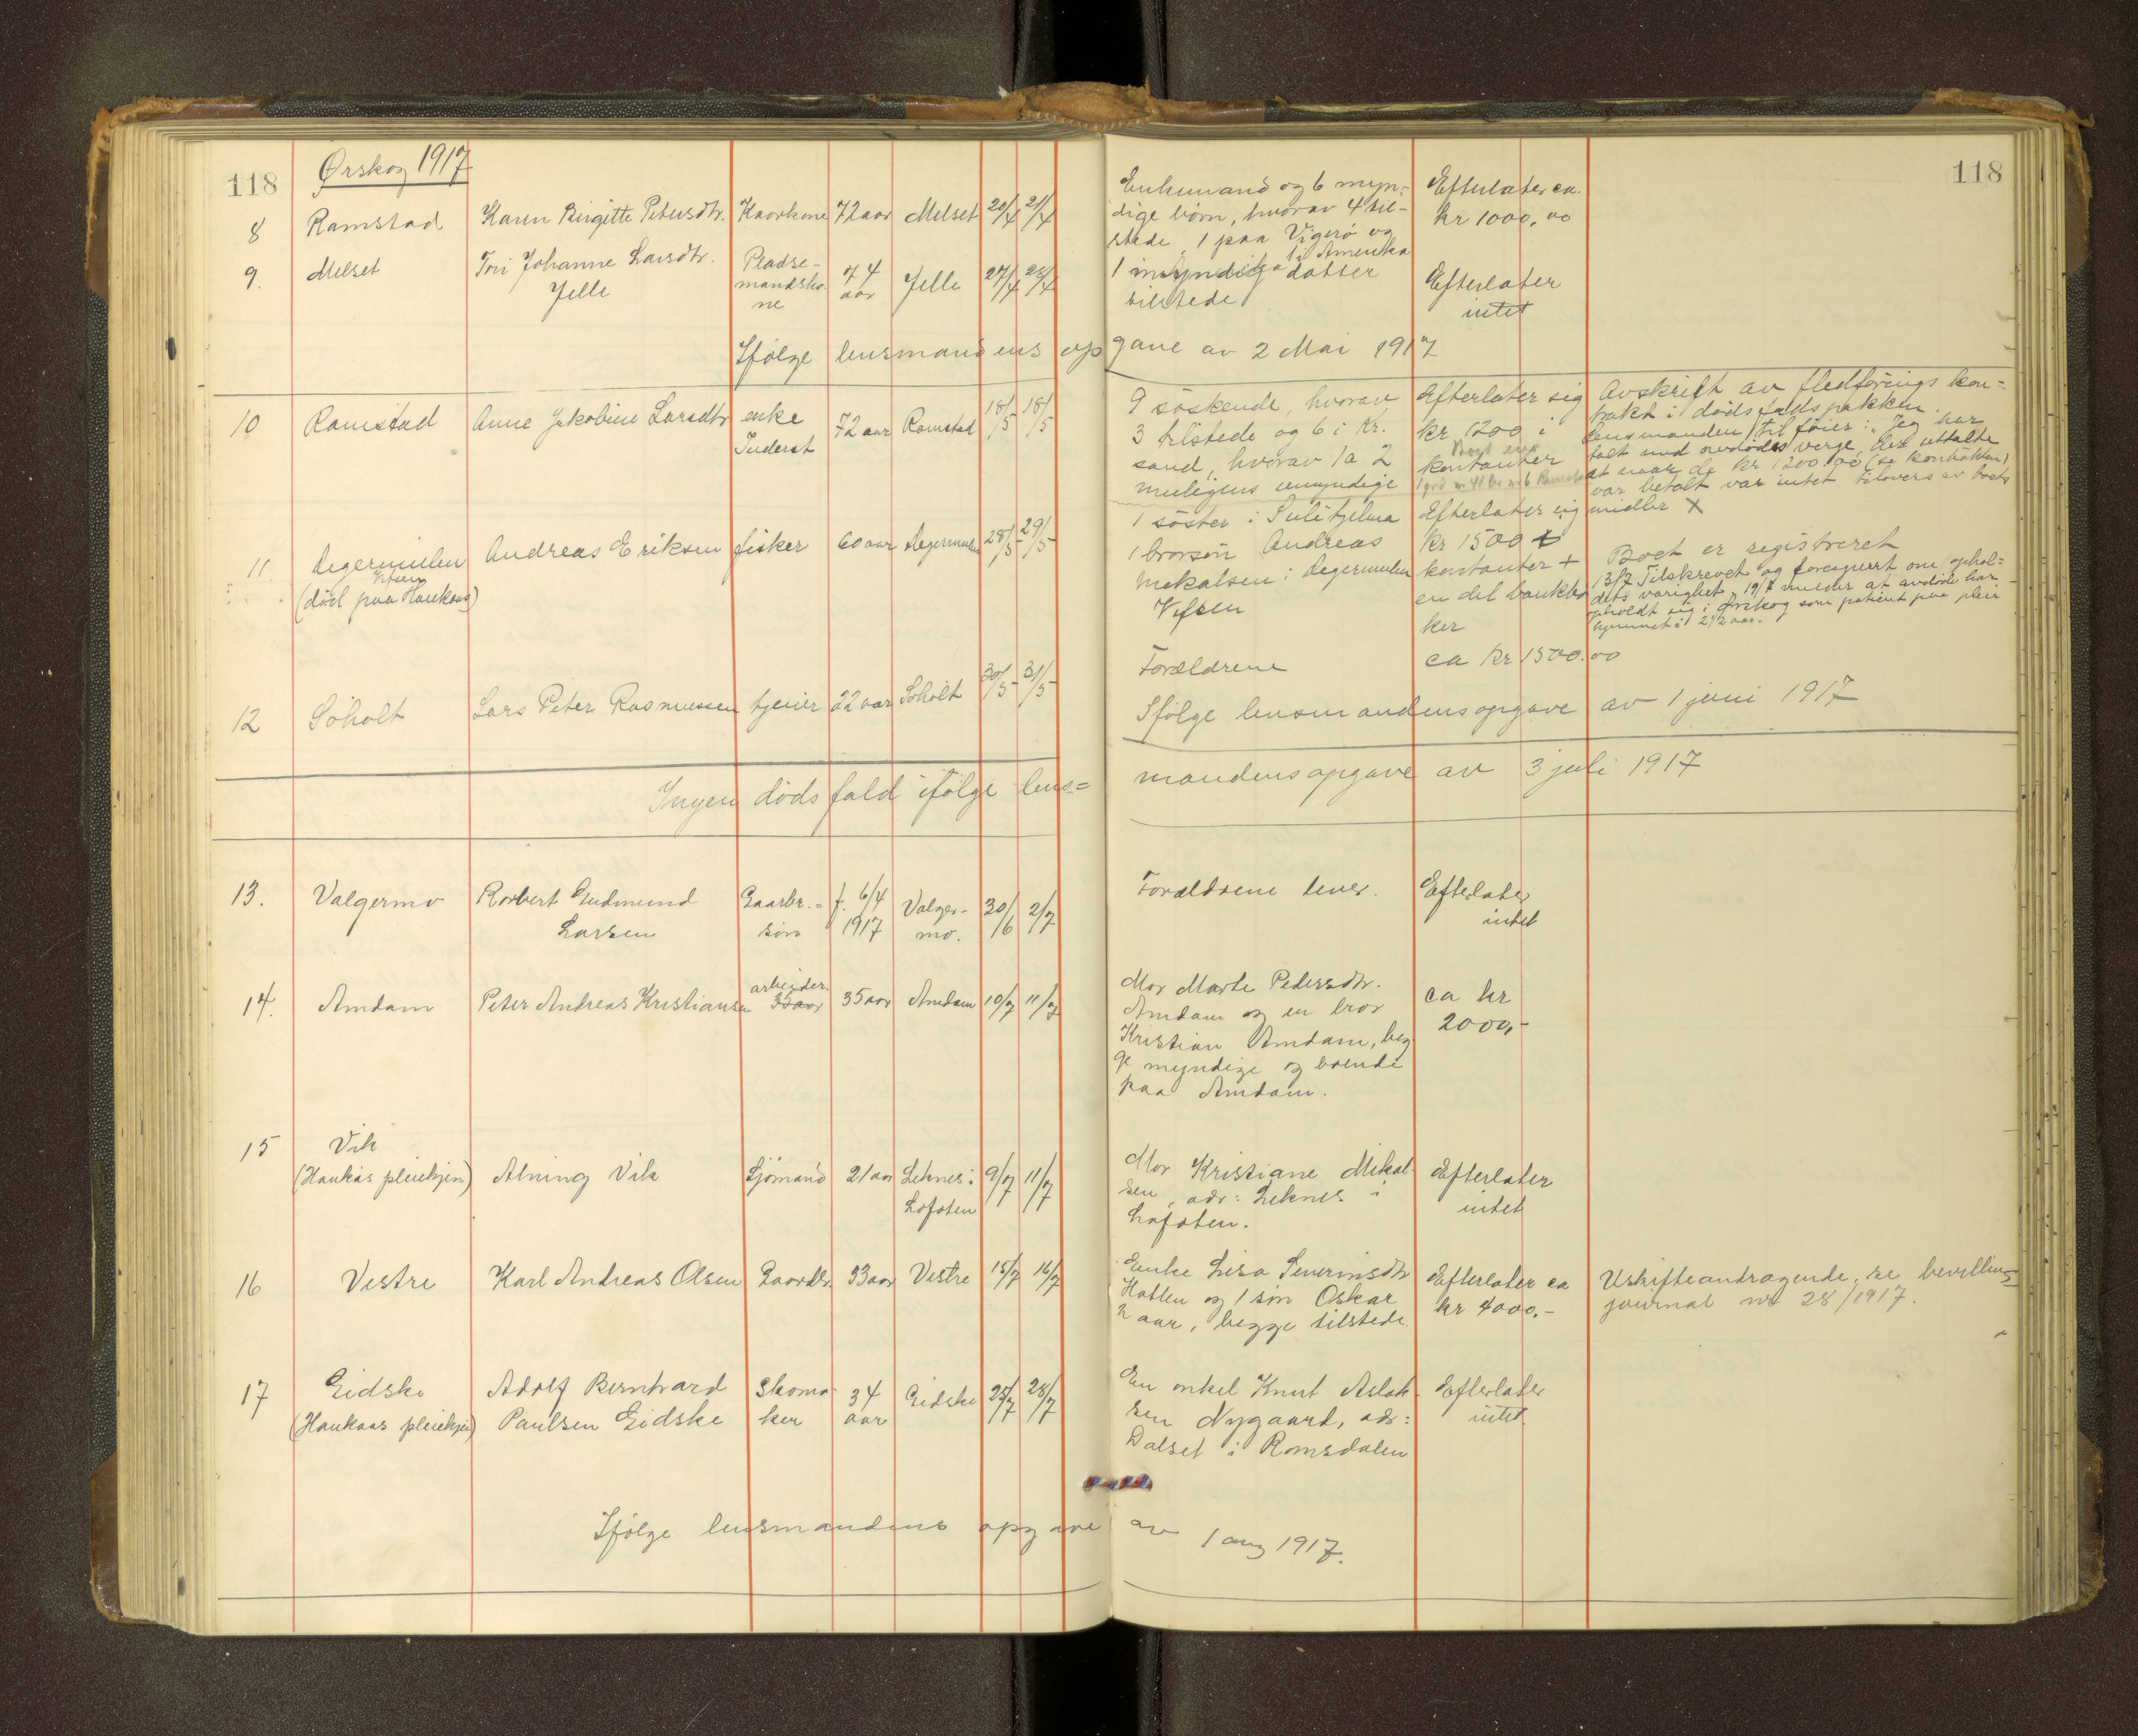 118
Ørskog 1917
118
8 Ramstad Karen Birgitte Petersdtr. Kaarkone 72 aar Melset 20/4 21/4
Enkemand og 6 myn-
dige børn, hvorav 4 til-
stede, 1 paa Vigerø og
1 i Amerika
Efterlater ca.
kr 1000,00
9. Melset Johanne Larsdtr.
Jelle
Pladse-
mandsko-
ne
74
aar
Jelle 27/4 28/4
1 datter
tilstede
Efterlater
intet
Ifølge lensmandens opgave av 2 Mai 1917
10 Ramstad Anne Jakobine Larsdtr enke
Inderst
72 aar Ramstad 18/5 18/5
9 søskende, hvorav
3 tilstede og 6 i Kr.
sand, hvorav 1 a 2
muligens umyndige
Efterlater sig
kr 1200 i
kontanter
Avskrift av fledførings kon=
trakt i dødsfaldspakken.
Lensmanden tilføier: "Jeg har
talt med avdødes verge, der uttalte
at naar de kr 1200,00 (se kontrakten)
var betalt var intet tilovers av boets
midler X
11 Digermulen
(død paa Haukaas)
Andreas Eriksen fisker 60 aar Digermulen 28/5 29/5
1 søster i Sulitjelma
1 brorsøn Andreas
Mikalsen i Digermulen
Vefsen
Efterlater sig
kr 1500 i
kontanter +
en del bankbø
ker
Boet er registreret
13/7 Tilskrevet og forespurt om ophol-
dets varighet, 19/7 melder at avdøde har
opholdt sig i Ørskog som patient paa pleie
hjemmet i 2 1/2 aar.
12 Søholt Lars Peter Rasmussen tjener 22 aar Søholt 30/5 31/5
Forældrene
ca kr 1500.00
Ifølge lensmandens opgave av 1 juni 1917
Ingen dødsfald ifølge lens=mandens opgave av 3 juli 1917
13. Valgermo Robert Gudmund
Larsen
Gaarbr.=
søn
f. 6/4
1917
Valger-
mo.
30/6 2/7
Forældrene lever.
Efterlater
intet
14. Amdam Peter Andreas Kristiansen arbeider.
35 aar
35 aar Amdam 10/7 11/7
Mor Marte Pedersdtr.
Amdam og en bror
Kristian Amdam, beg
ge myndige og boende
paa Amdam.
ca kr
2000,-
15 Vik
(Haukås pleiehjem)
Alning Vik Sjømand 21 aar Leknes i
Lofoten
9/7 11/7
Mor Kristiane Mikal
sen, adr: Leknes i
Lofoten.
Efterlater
intet
16 Vestre Karl Andreas Olsen Gaardbr. 33 aar Vestre 15/7 16/7
Enke Lisa Severinsdtr
Hatlen og 1 søn Oskar
2 aar, begge tilstede.
Efterlater ca
kr 4000.-
Uskifteandragende, se bevillings
journal nr 28/1917.
17 Eidske
(Haukaas pleiehjem)
Adolf Bernhard
Paulsen Eidske
Skoma-
ker
34
aar
Eidske 25/7 28/7
En onkel Knut Aslak-
sen Nygaard, adr:
Dalset i Romsdalen
Efterlater
intet.
Ifølge lensmandens opgave av 1 aug 1917.